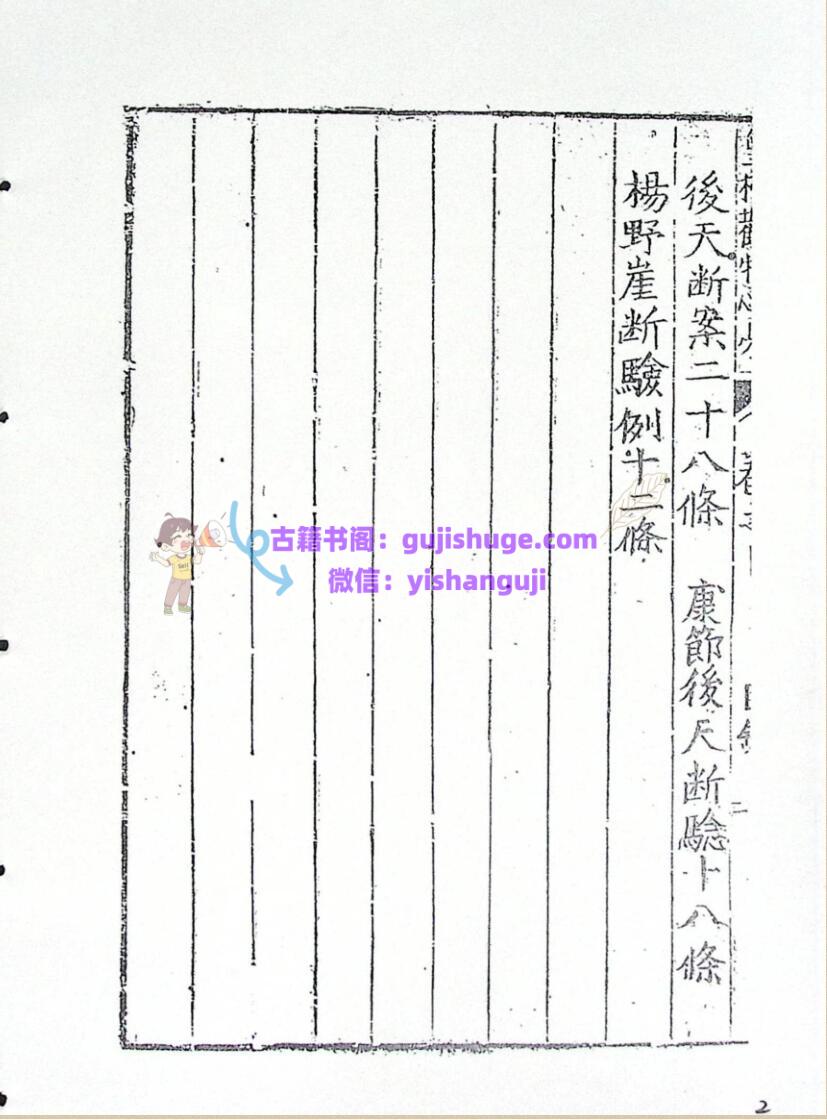 後天断案二十八條　康節後天断驗十八條
楊野崖断驗例十二條
古籍书阁：gujishuge.com
微信：yishanguji
2